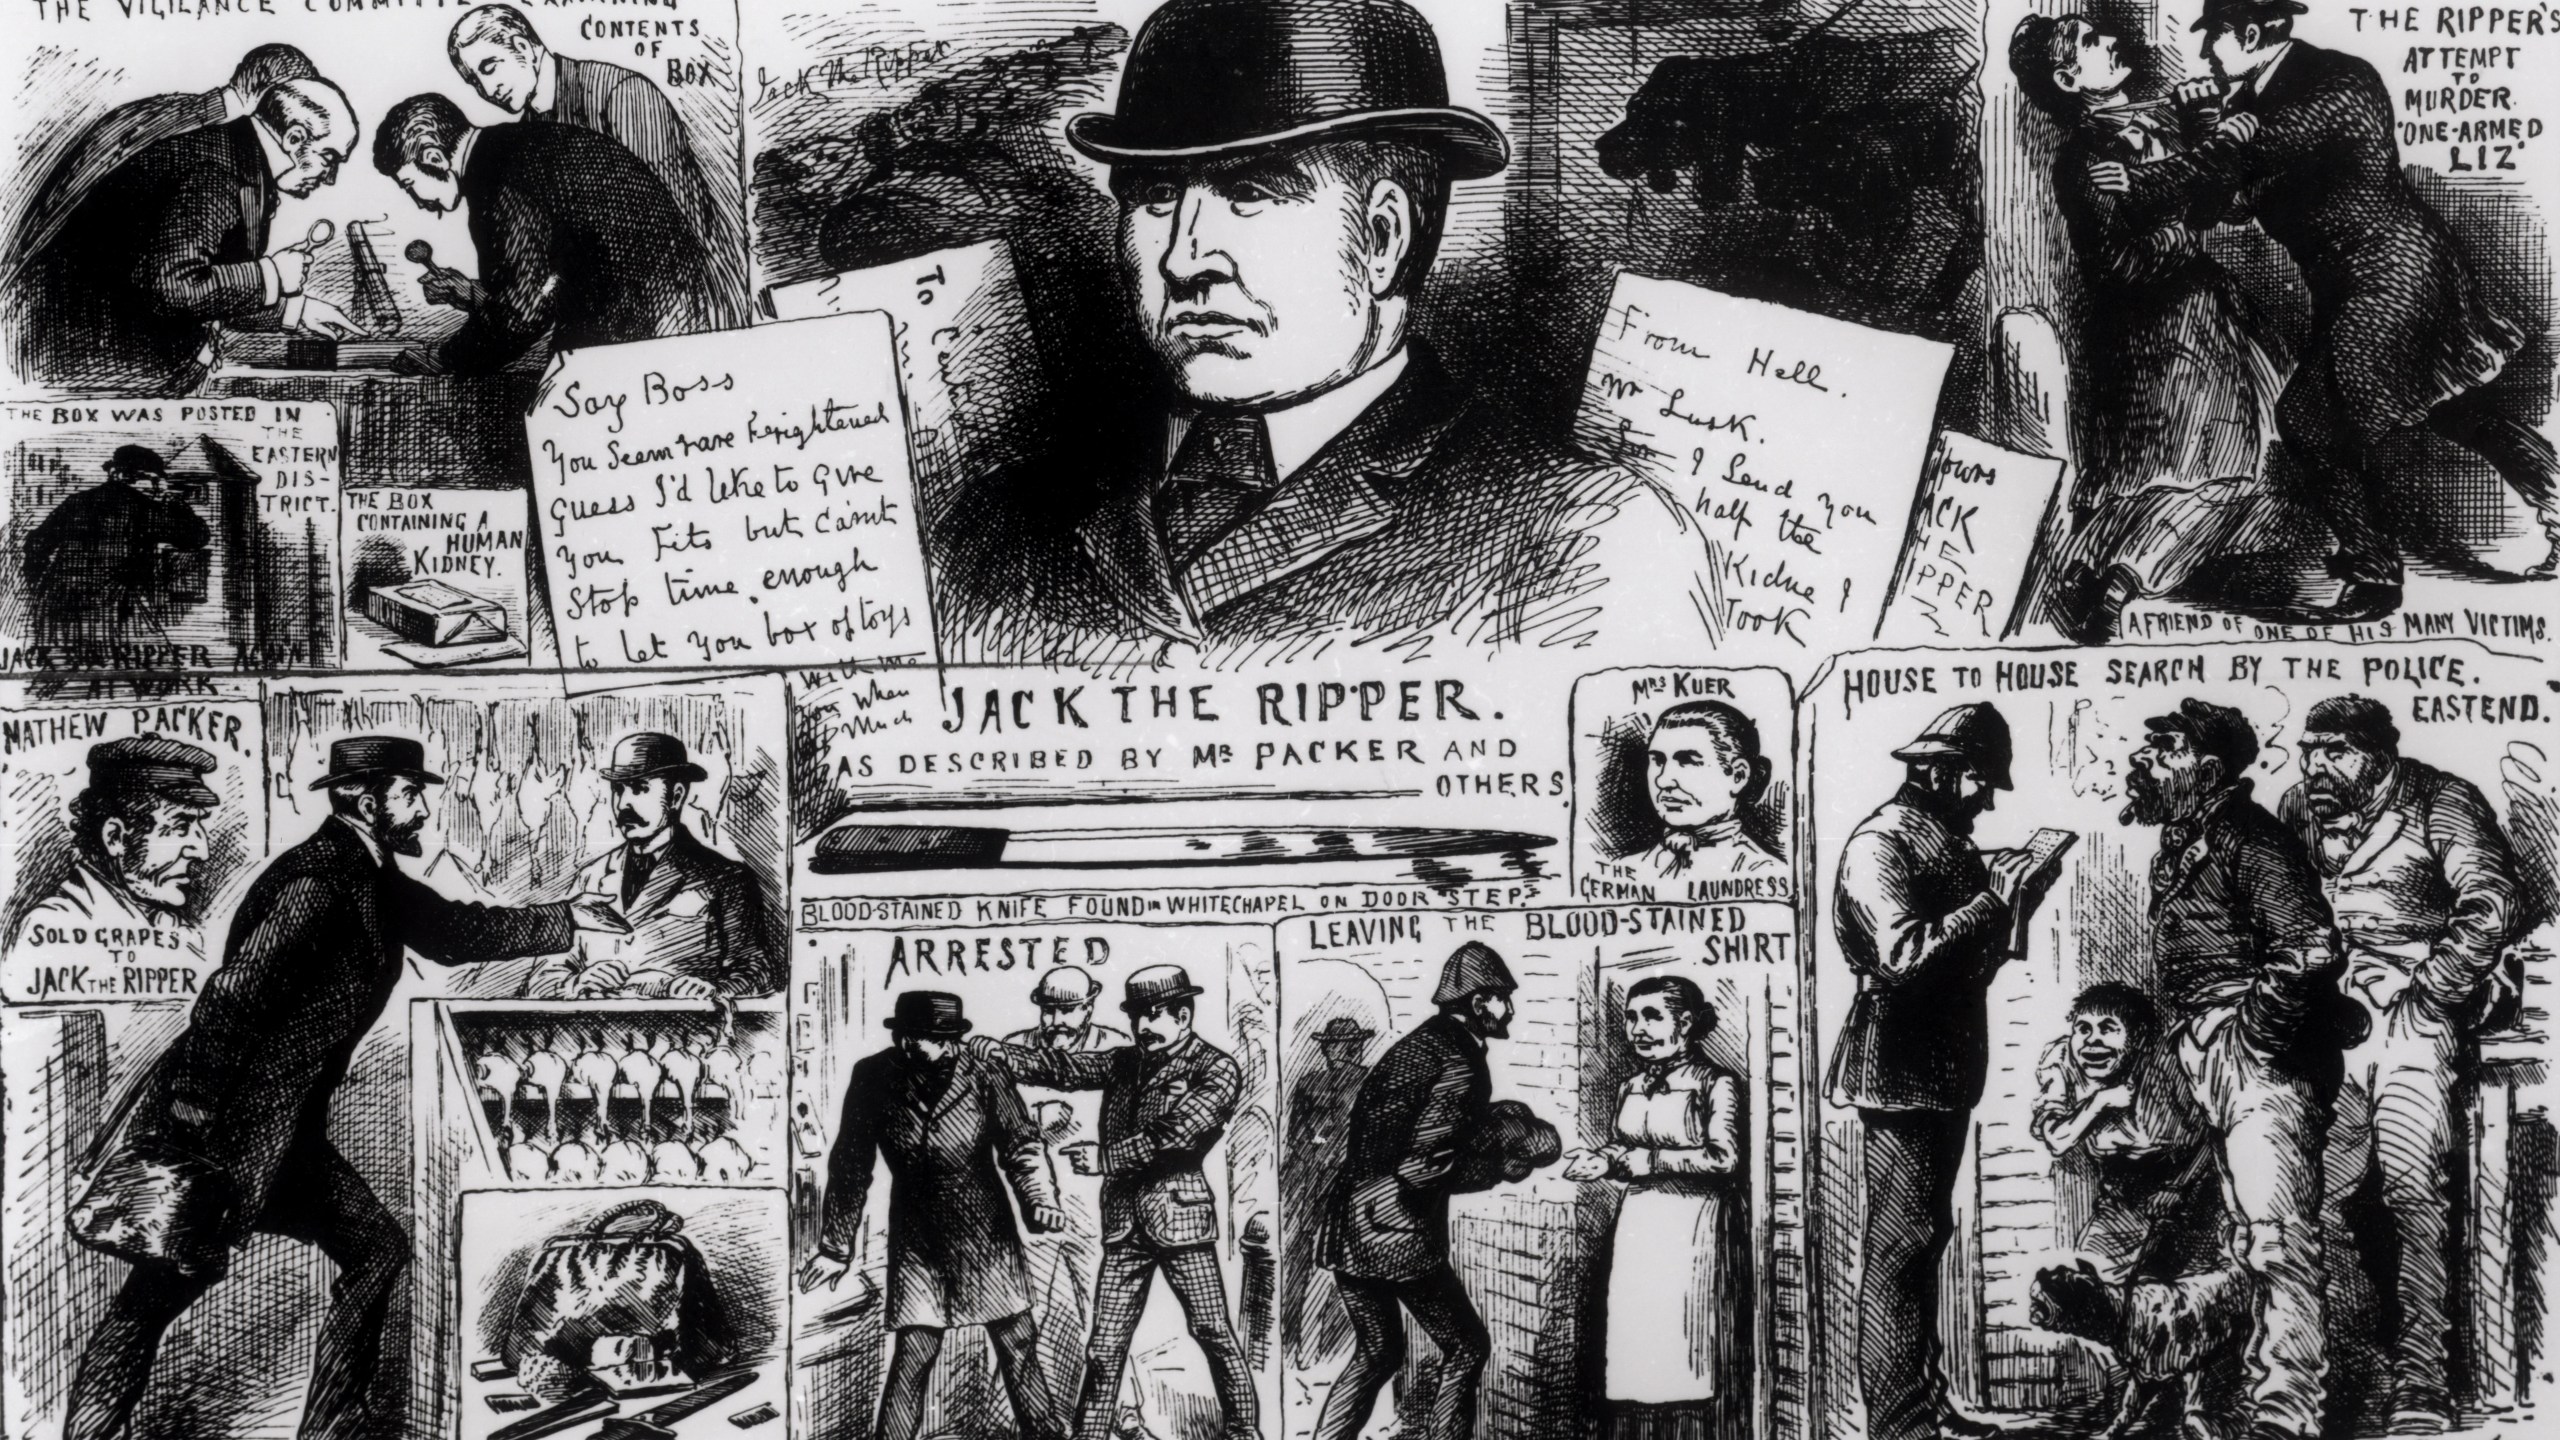 THE VIGILANCE COMMITTEE EXAMINING
CONTENTS
OF
BOX
Jack the Ripper
THE RIPPER'S
ATTEMPT
TO
MURDER
"ONE-ARMED
LIZ"
A FRIEND OF ONE OF HIS MANY VICTIMS.
THE BOX WAS POSTED IN
THE
EASTERN
DIS-
TRICT.
JACK THE RIPPER AGAIN
AT WORK.
THE BOX
CONTAINING A
HUMAN
KIDNEY.
Say Boss
You Seem rare frightened
guess I'd like to give
you fits but can't
Stop time enough
to let you box of toys
with me
you When
Much
To
From Hell.
Mr Lusk.
Sor I Send you
half the
Kidne I
Took
yours
ACK
HE
IPPER
JACK THE RIPPER.
AS DESCRIBED BY MR PACKER AND
OTHERS.
BLOOD-STAINED KNIFE FOUND IN WHITECHAPEL ON DOOR "STEP."
MRS KUER
THE
GERMAN LAUNDRESS
HOUSE TO HOUSE SEARCH BY THE POLICE.
EASTEND.
MATHEW PACKER.
SOLD GRAPES
TO
JACK THE RIPPER
ARRESTED
LEAVING THE BLOOD-STAINED
SHIRT